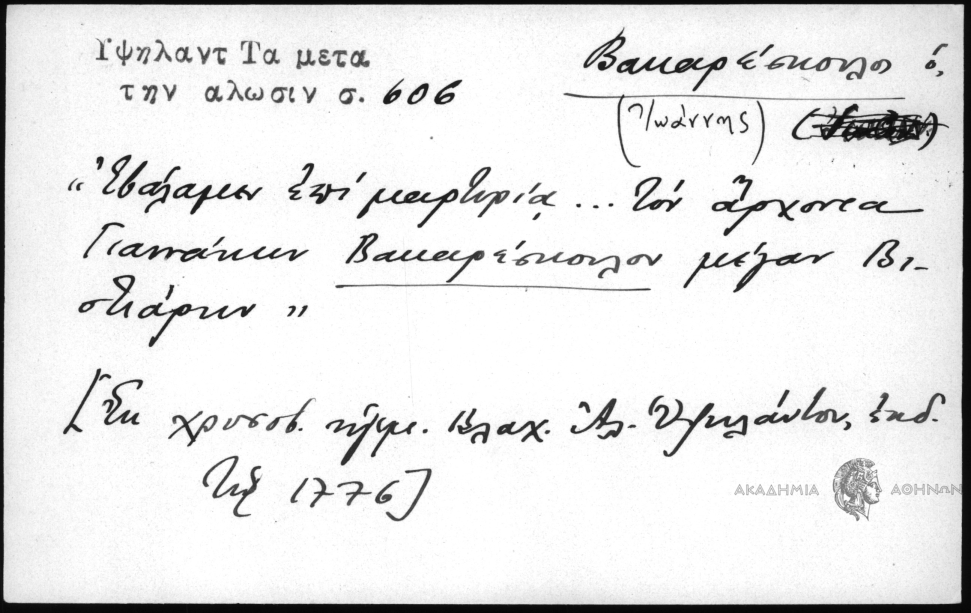 Ὑψηλαντ Τα μετα
την αλωσιν σ. 606
Βακαρέσκουλο ὁ,
(Ἰωάννης)
"Ἐβάλαμεν ἐπί μαρτυρίᾳ ... τόν ἄρχοντα
Γιαννάκην Βακαρέσκουλον μέγαν Βι-
στιάρην"
[Ἐκ χρυσοβ. ἡγεμ. Βλαχ. Ἀλ. Ὑψηλάντου, ἐκδ.
τῷ 1776]
ΑΚΑΔΗΜΙΑ ΑΘΗΝΩΝ